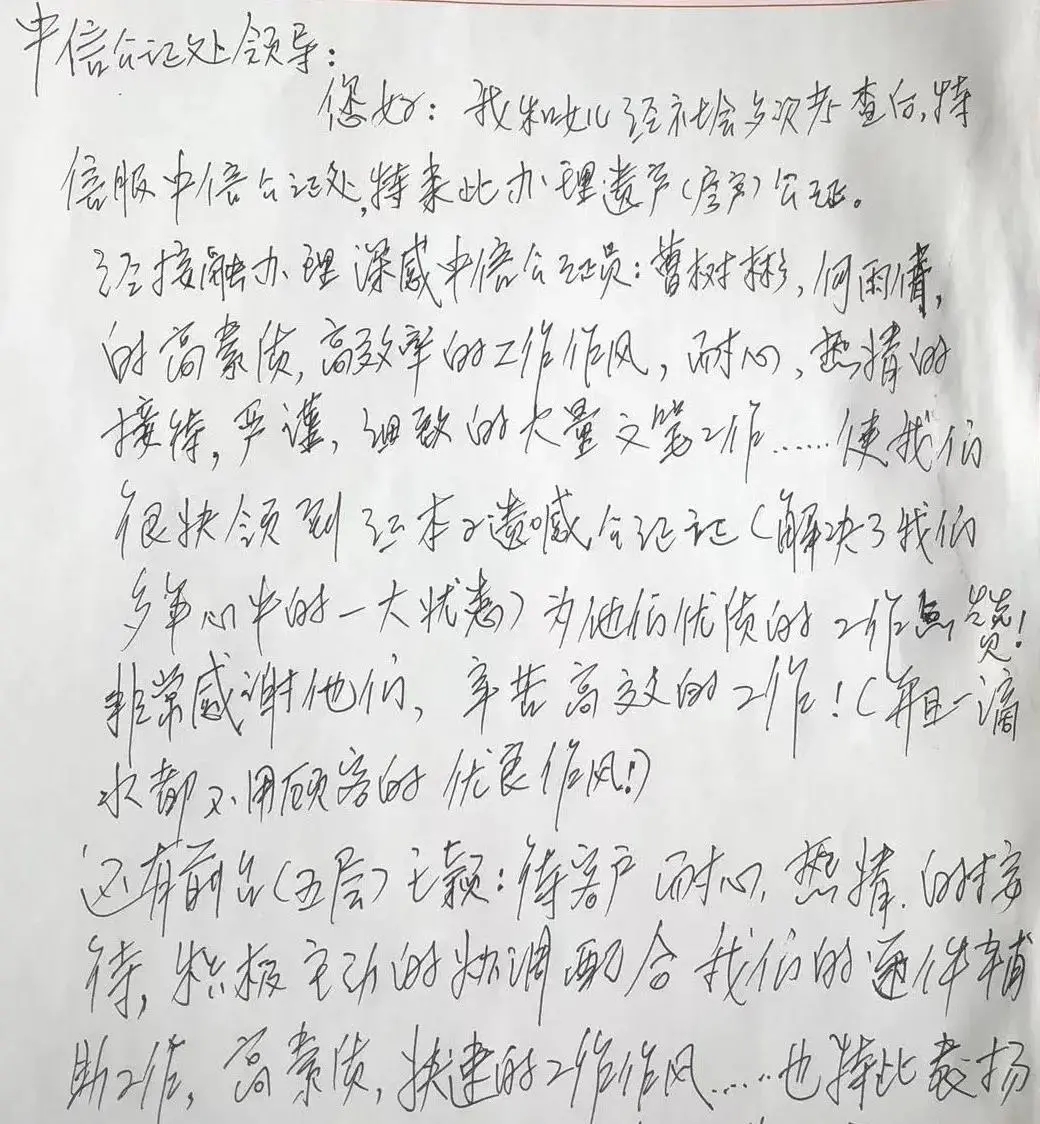 中信公证处领导：
您好：我和女儿经社会多次考查后，特
信服中信公证处，特来此办理遗产（房产）公证。
经接触办理深感中信公证员：曹树彬，何雨倩，
的高素质，高效率的工作作风，耐心，热情的
接待，严谨，细致的大量文笔工作……使我们
很快领到红本本遗嘱公证证（解决了我们
多年心中的一大忧患）为他们优质的工作点赞！
非常感谢他们，辛苦高效的工作！（并且一滴
水都不用顾客的优良作风！）
还有前台（五层）王颖：待客户耐心，热情，的接
待，积极主动的协调配合我们的 件辅
助工作，高素质，快速的工作作风……也特此表扬